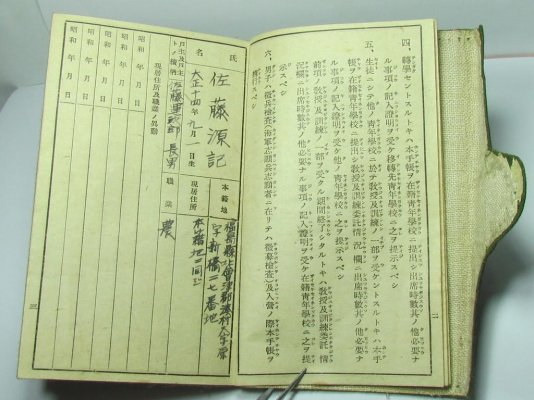 四、轉學セントスルトキハ本手帳ヲ在籍青年學校ニ提出シ出席時數其ノ他必要ナ
ル事項ノ記入證明ヲ受ケ移轉先青年學校ニ之ヲ提示スベシ
五、生徒ニシテ他ノ青年學校ニ於テ教授及訓練ノ一部ヲ受ケントスルトキハ本手
帳ヲ在籍青年學校ニ提出シ教授及訓練委託情況欄ニ出席時數其ノ他必要ナ
ル事項ノ記入證明ヲ受ケ他ノ青年學校ニ之ヲ提示スベシ
前項ノ教授及訓練ノ一部ヲ受クル期間終了シタルトキハ教授及訓練委託情
況欄ニ出席時數其ノ他必要ナル事項ノ記入證明ヲ受ケ在籍青年學校ニ之ヲ提
示スベシ
六、男子ハ徵兵檢査(海軍志願兵志願者ニ在リテハ徵募檢査)及入營ノ際本手帳ヲ
携行スベシ
二
氏名
佐藤源記
大正十四年九月一日生
本籍地
字新橋二七番地
戶主トノ續柄
長男
現住所
本籍地ニ同じ
職業
農
現住所及職業ノ異動
昭和 年 月 日
昭和 年 月 日
昭和 年 月 日
昭和 年 月 日
昭和 年 月 日
三